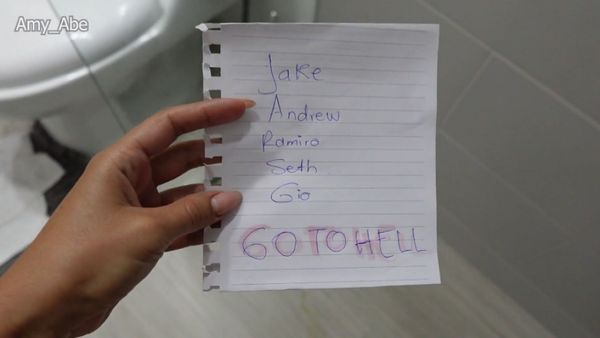 Amy_Abe
Jake
Andrew
Ramiro
Seth
Gio
GO TO HELL